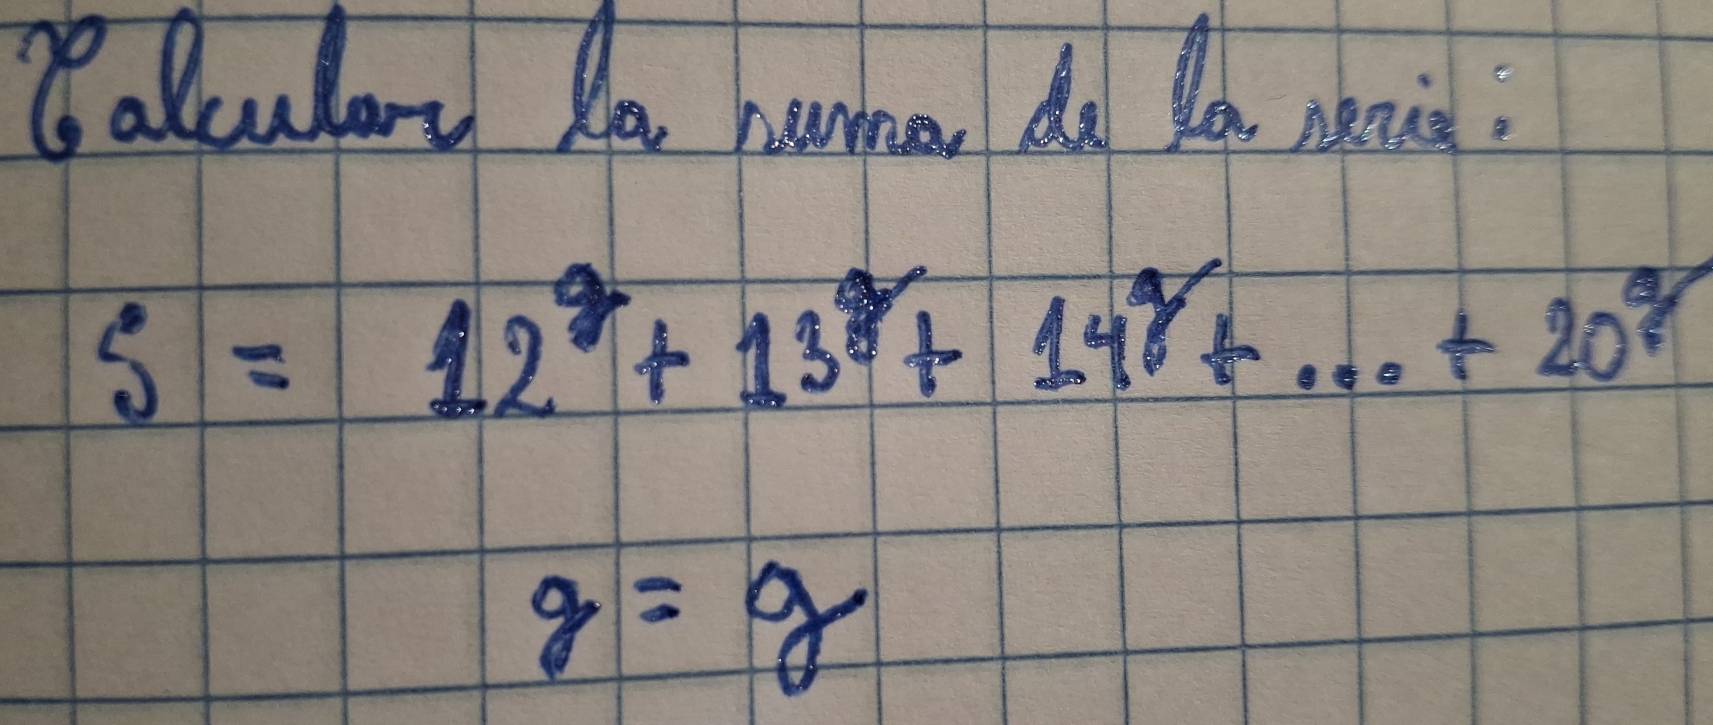 Calcular la suma de la serie:
S = 12^g + 13^g + 14^g + ... + 20^g
g = g